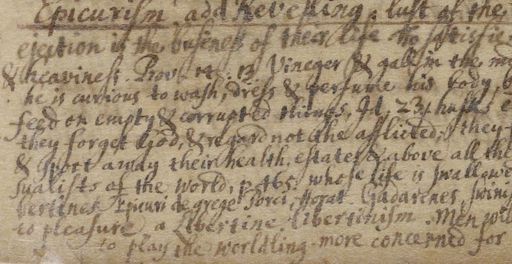 Epicurism. add Revelling. lust of the
ejection is the business of their life to satisfie
& heaviness. Prov. 14. 13 Vineger & gall in the
he is curious to wash, dress & perfume his body,
feed on empty & corrupted things, Id. 23. husks
they forget God, & regard not the afflicted. they
& sport away their health, estates & above all the
sualists of the world, p. 465. whose life is swallowe
bertines Epicuri de grege Porci, Horat. Gadarenes, swini
to pleasure a Libertine. Libertinism. Men wil
to play the worldling. more concerned for